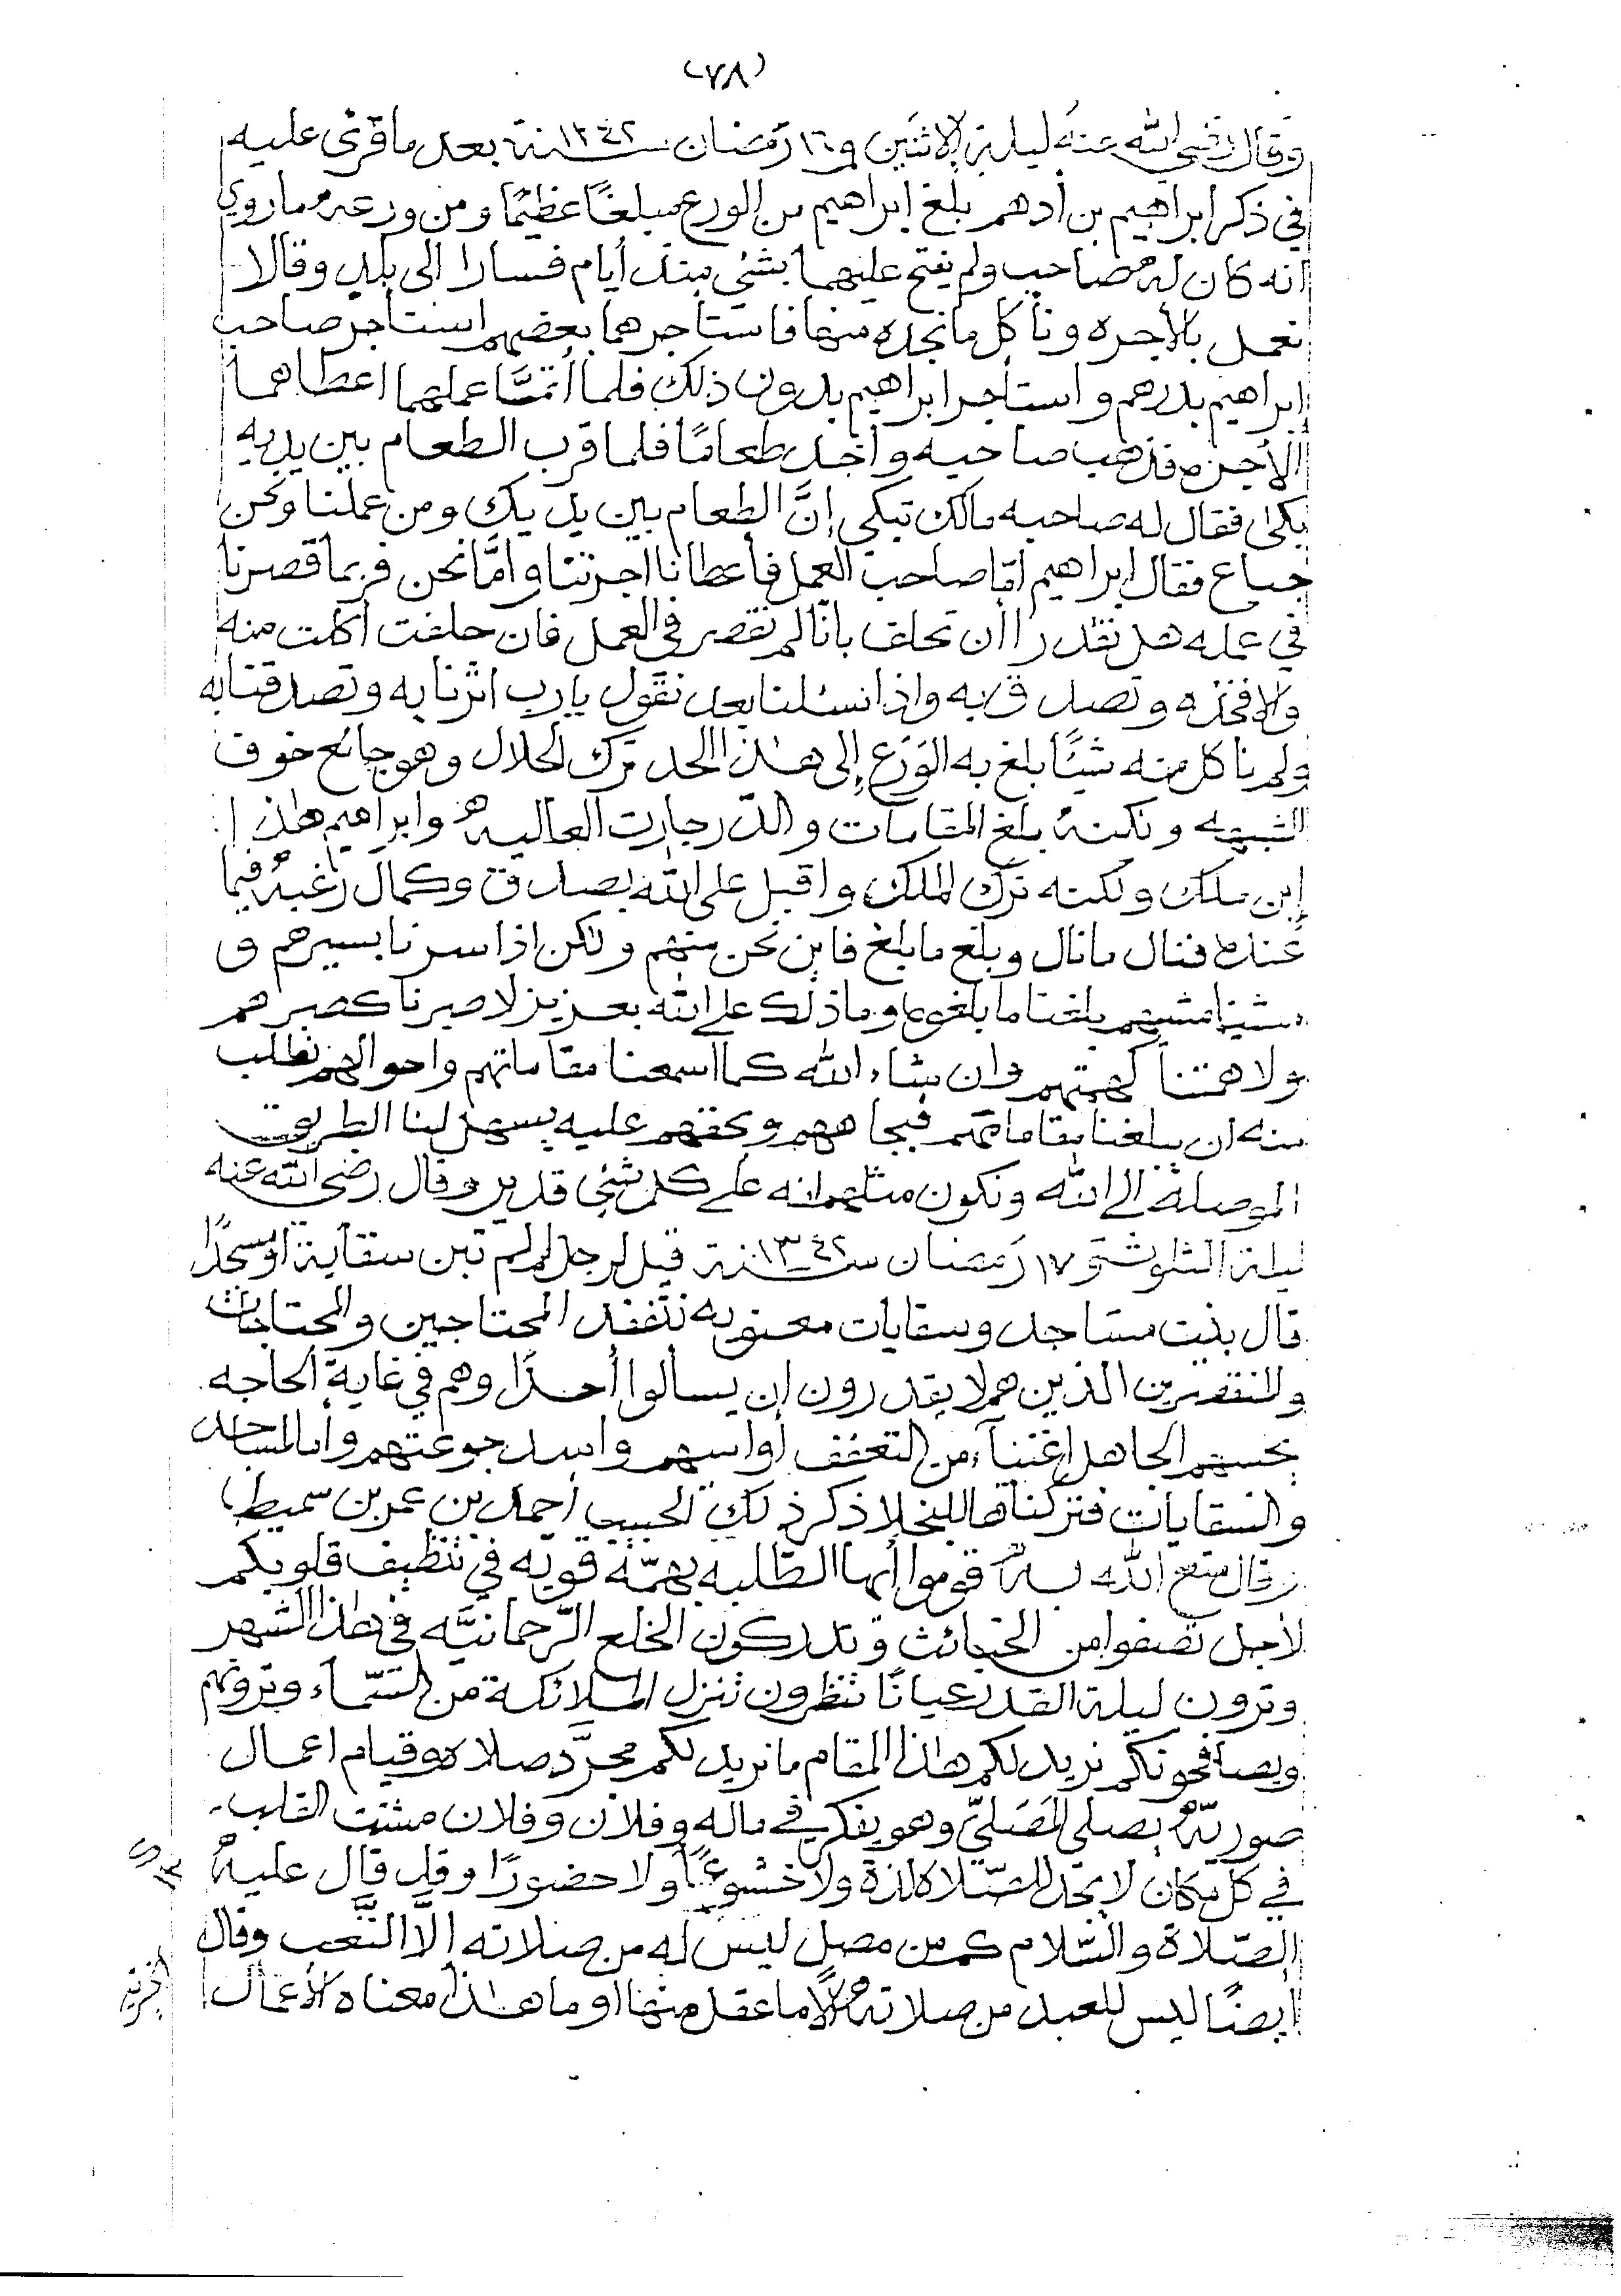 (٧٨)
وقال رضي الله عنه ليلة الإثنين و١٦ رمضان سنة ١٣٤٢ بعد ما قرئ عليه
في ذكر ابراهيم بن أدهم بلغ ابراهيم من الورع مبلغًا عظيمًا ومن ورعه ما روي
انه كان له صاحب ولم يفتح عليهما بشئي منذ أيام فسارا الى بلد وقالا
نعمل بالأجره ونأكل ما نجده منها فاستأجرهما بعضهم استأجر صاحب
ابراهيم بدرهم واستأجر ابراهيم بدون ذلك فلما أتمَّا عملهما اعطاهما
الأجره فذهب صاحبه وأخذ طعامًا فلما قرب الطعام بين يديه
بكى فقال له صاحبه مالك تبكي إنَّ الطعام بين يديك ومن عملنا ونحن
جياع فقال ابراهيم امّا صاحب العمل فأعطانا اجرتنا وامَّا نحن فربما قصرنا
في عمله هل تقدر أن تحلف بانّا لم نقصر في العمل فان حلفت أكلت منه
والا فخذه وتصدق به واذا نسئلنا بعد نقول يارب اثرنا به وتصدقنا به
ولم نأكل منه شيئًا بلغ به الوَرَع إلى هذا الحد ترك الحلال وهو جائع خوف
الشبهه ولكنه بلغ المقامات والدرجات العاليه وابراهيم هذا
إبن ملك ولكنه ترك الملك واقبل على الله بصدق وكمال رغبه فيما
عنده فنال ما نال وبلغ ما بلغ فاين نحن منهم ولكن اذا سرنا بسيرهم و
مشينا مشيهم بلغنا ما بلغوه وما ذلك على الله بعزيز لا صبرنا كصبرهم
ولا همتنا كهمتهم وان شاء الله كما اسمعنا مقاماتهم واحوالهم نطلب
منه ان يبلغنا مقاماتهم فبجاههم وبحقهم عليه يسهل لنا الطريق
الموصلة الى الله ونكون مثلهم انه على كل شئي قدير وقال رضي الله عنه
ليلة الثلوث و ١٧ رمضان سنة ١٣٤٢ قيل لرجل لم لم تبن سقاية أو مسجدًا
قال بنيت مساجد وسقايات معنويه نتفقد المحتاجين والمحتاجات
والمنقصرين الذين هم لا يقدرون ان يسألوا أحدًا وهم في غاية الحاجه
يحسبهم الجاهل اغنيآء من التعفف أواسهم واسد جوعتهم وأما المساجد
والسقايات فتركناها للبخلا ذكر ذلك الحبيب أحمد بن عمر بن سميط)
وقال متع الله به قوموا أيها الطّلبه بهمّه قويه في تنظيف قلوبكم
لأجل تصفوا من الخبائث وتدركون الخلع الرّحمانيَّه في هذا الشهر
وترون ليلة القدر عيانًا تنظرون تنزل الملائكة من السّماء وترونهم
ويصافحونكم نريد لكم هذا المقام ما نريد لكم مجرَّد صلاه وقيام اعمال
صوريّه يصلي المُصَلّي وهو يفكر في ماله وفلان وفلان مشتت القلب
في كل مكان لا يجد للصّلاه لذة ولا خشوعًا ولا حضورًا وقد قال عليه
الصّلاة والسّلام كم من مصل ليس له من صلاته إلّا التَّعب وقال
أيضًا ليس للعبد من صلاته إلّا ما عقل منها او ما هذا معناه الأعمال